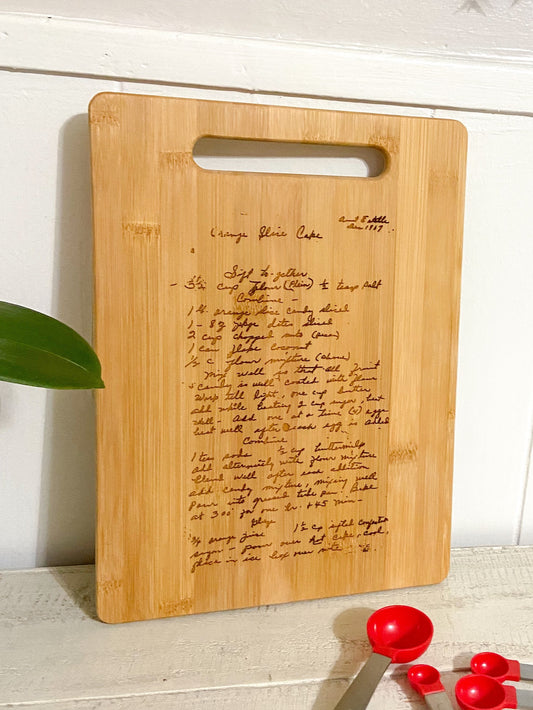 Aunt Estelle
Dec 1967
Orange Slice Cake
Sift to-gether
3½ cup flour (Plain) ½ teasp salt
Combine -
1 lb. orange slice candy sliced
1 - 8 oz pkge dates sliced
2 cup chopped nuts
1 can flake coconut
½ c flour mixture (above)
Mix well so that all fruit
& candy is well coated with flour
Work till light, one cup butter
add while beating 2 cup sugar, beat
well - Add one at a time (4) eggs
beat well after each egg is added
Combine
1 teas soda ½ cup buttermilk
Add alternately with flour mixture
blend well after each addition
add candy mixture, mixing well
Pour into greased tube pan. Bake
at 300° for one hr. & 45 min -
¾ orange juice 1½ cup sifted
sugar - pour over hot cake, cool,
place in ice box over nite